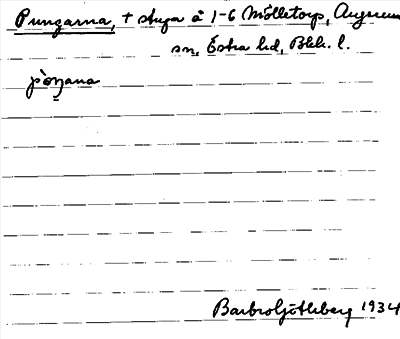 Pungarna, + stuga å 1-6 Mölletorp, Augerum
sn, Östra hd, Blek. l.
pòŋana
Barbro Götlberg 1934